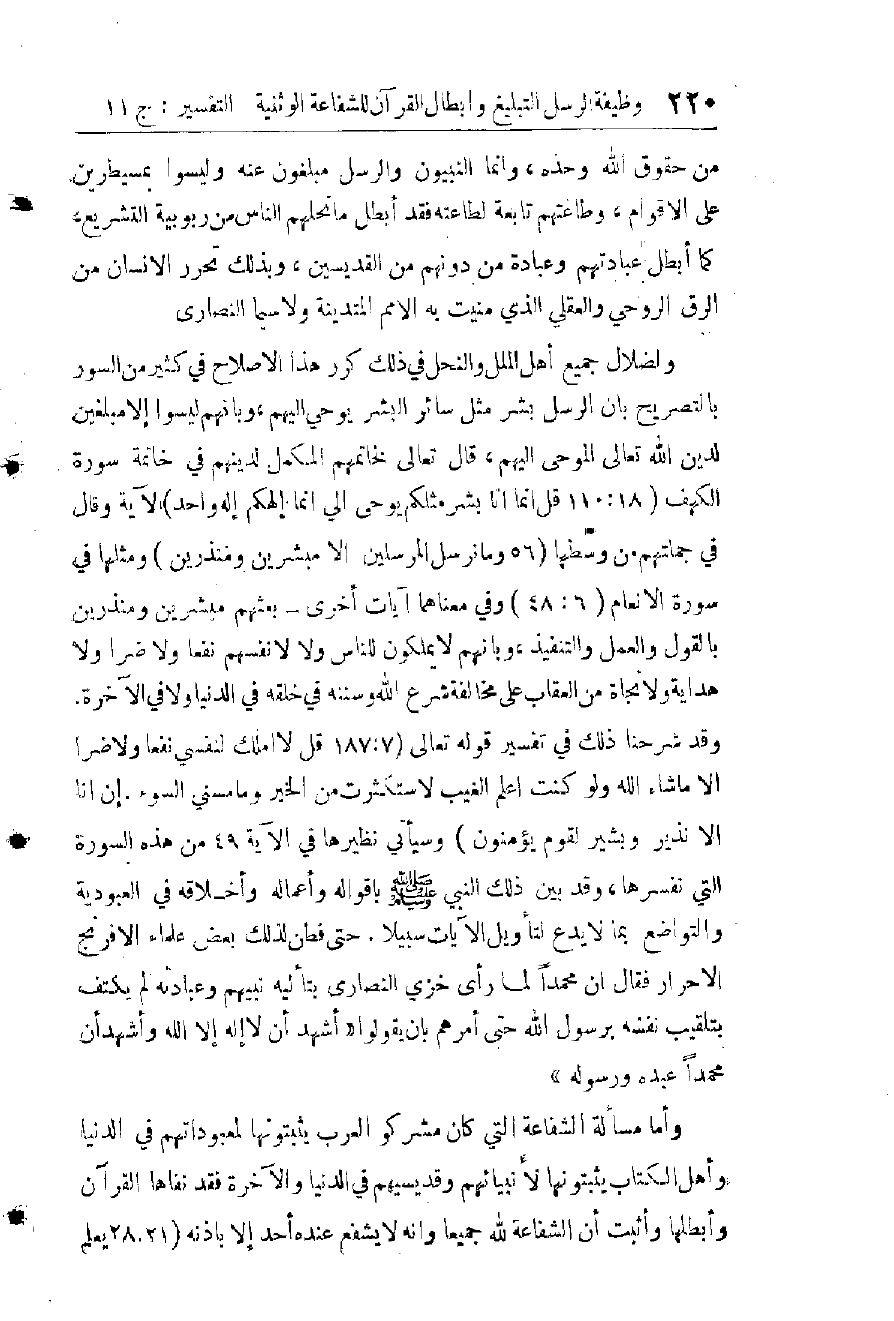 ٢٢٠ وظيفة الرسل التبليغ وابطال القرآن للشفاعة الوثنية التفسير : ج ١١
من حقوق الله وحده ، وانما النبيون والرسل مبلغون عنه وليسوا بمسيطرين
على الاقوام ، وطاعتهم تابعة لطاعته فقد أبطل ما نحلهم الناس من ربوبية التشريع ،
كما أبطل عبادتهم وعبادة من دونهم من القديسين ، وبذلك تحرر الانسان من
الرق الروحي والعقلي الذي منيت به الامم المتدينة ولاسيما النصارى
ولضلال جميع أهل الملل والنحل في ذلك كرر هذا الاصلاح في كثير من السور
بالتصريح بان الرسل بشر مثل سائر البشر يوحى اليهم ، وبانهم ليسوا إلا مبلغين
لدين الله تعالى الموحى اليهم ، قال تعالى لخاتمهم المكمل لدينهم في خاتمة سورة
الكهف ( ١٨ : ١١٠ قل انما انا بشر مثلكم يوحى الي انما إلهكم إله واحد ) الآية وقال
في جملتهم من وسطها ( ٥٦ وما نرسل المرسلين الا مبشرين ومنذرين ) ومثلها في
سورة الانعام ( ٦ : ٤٨ ) وفي معناهما آيات أخرى ــ بعثهم مبشرين ومنذرين
بالقول والعمل والتنفيذ ، وبانهم لا يملكون للناس ولا لانفسهم نفعا ولا ضرا ولا
هداية ولا نجاة من العقاب على مخالفة شرع الله وسننه في خلقه في الدنيا ولا في الآخرة .
وقد شرحنا ذلك في تفسير قوله تعالى ( ٧ : ١٨٧ قل لا املك لنفسي نفعا ولا ضرا
الا ماشاء الله ولو كنت اعلم الغيب لاستكثرت من الخير وما مسني السوء . إن انا
الا نذير وبشير لقوم يؤمنون ) وسيأتي نظيرها في الآية ٤٩ من هذه السورة
التي نفسرها ، وقد بين ذلك النبي ﷺ باقواله وأعماله وأخـلاقه في العبودية
والتواضع بما لا يدع لتأويل الآيات سبيلا . حتى فطن لذلك بعض علماء الافرنج
الاحرار فقال ان محمداً لمـا رأى خزي النصارى بتأليه نبيهم وعبادته لم يكتف
بتلقيب نفسه برسول الله حتى أمرهم بان يقولوا « أشهد أن لا إله إلا الله وأشهد أن
محمداً عبده ورسوله »
وأما مسألة الشفاعة التي كان مشركو العرب يثبتونها لمعبوداتهم في الدنيا
وأهل الكتاب يثبتونها لأنبيائهم وقديسيهم في الدنيا والآخرة فقد نفاها القرآن
وأبطلها وأثبت أن الشفاعة لله جميعا وانه لا يشفع عنده أحد إلا باذنه ( ٢١ . ٢٨ يعلم